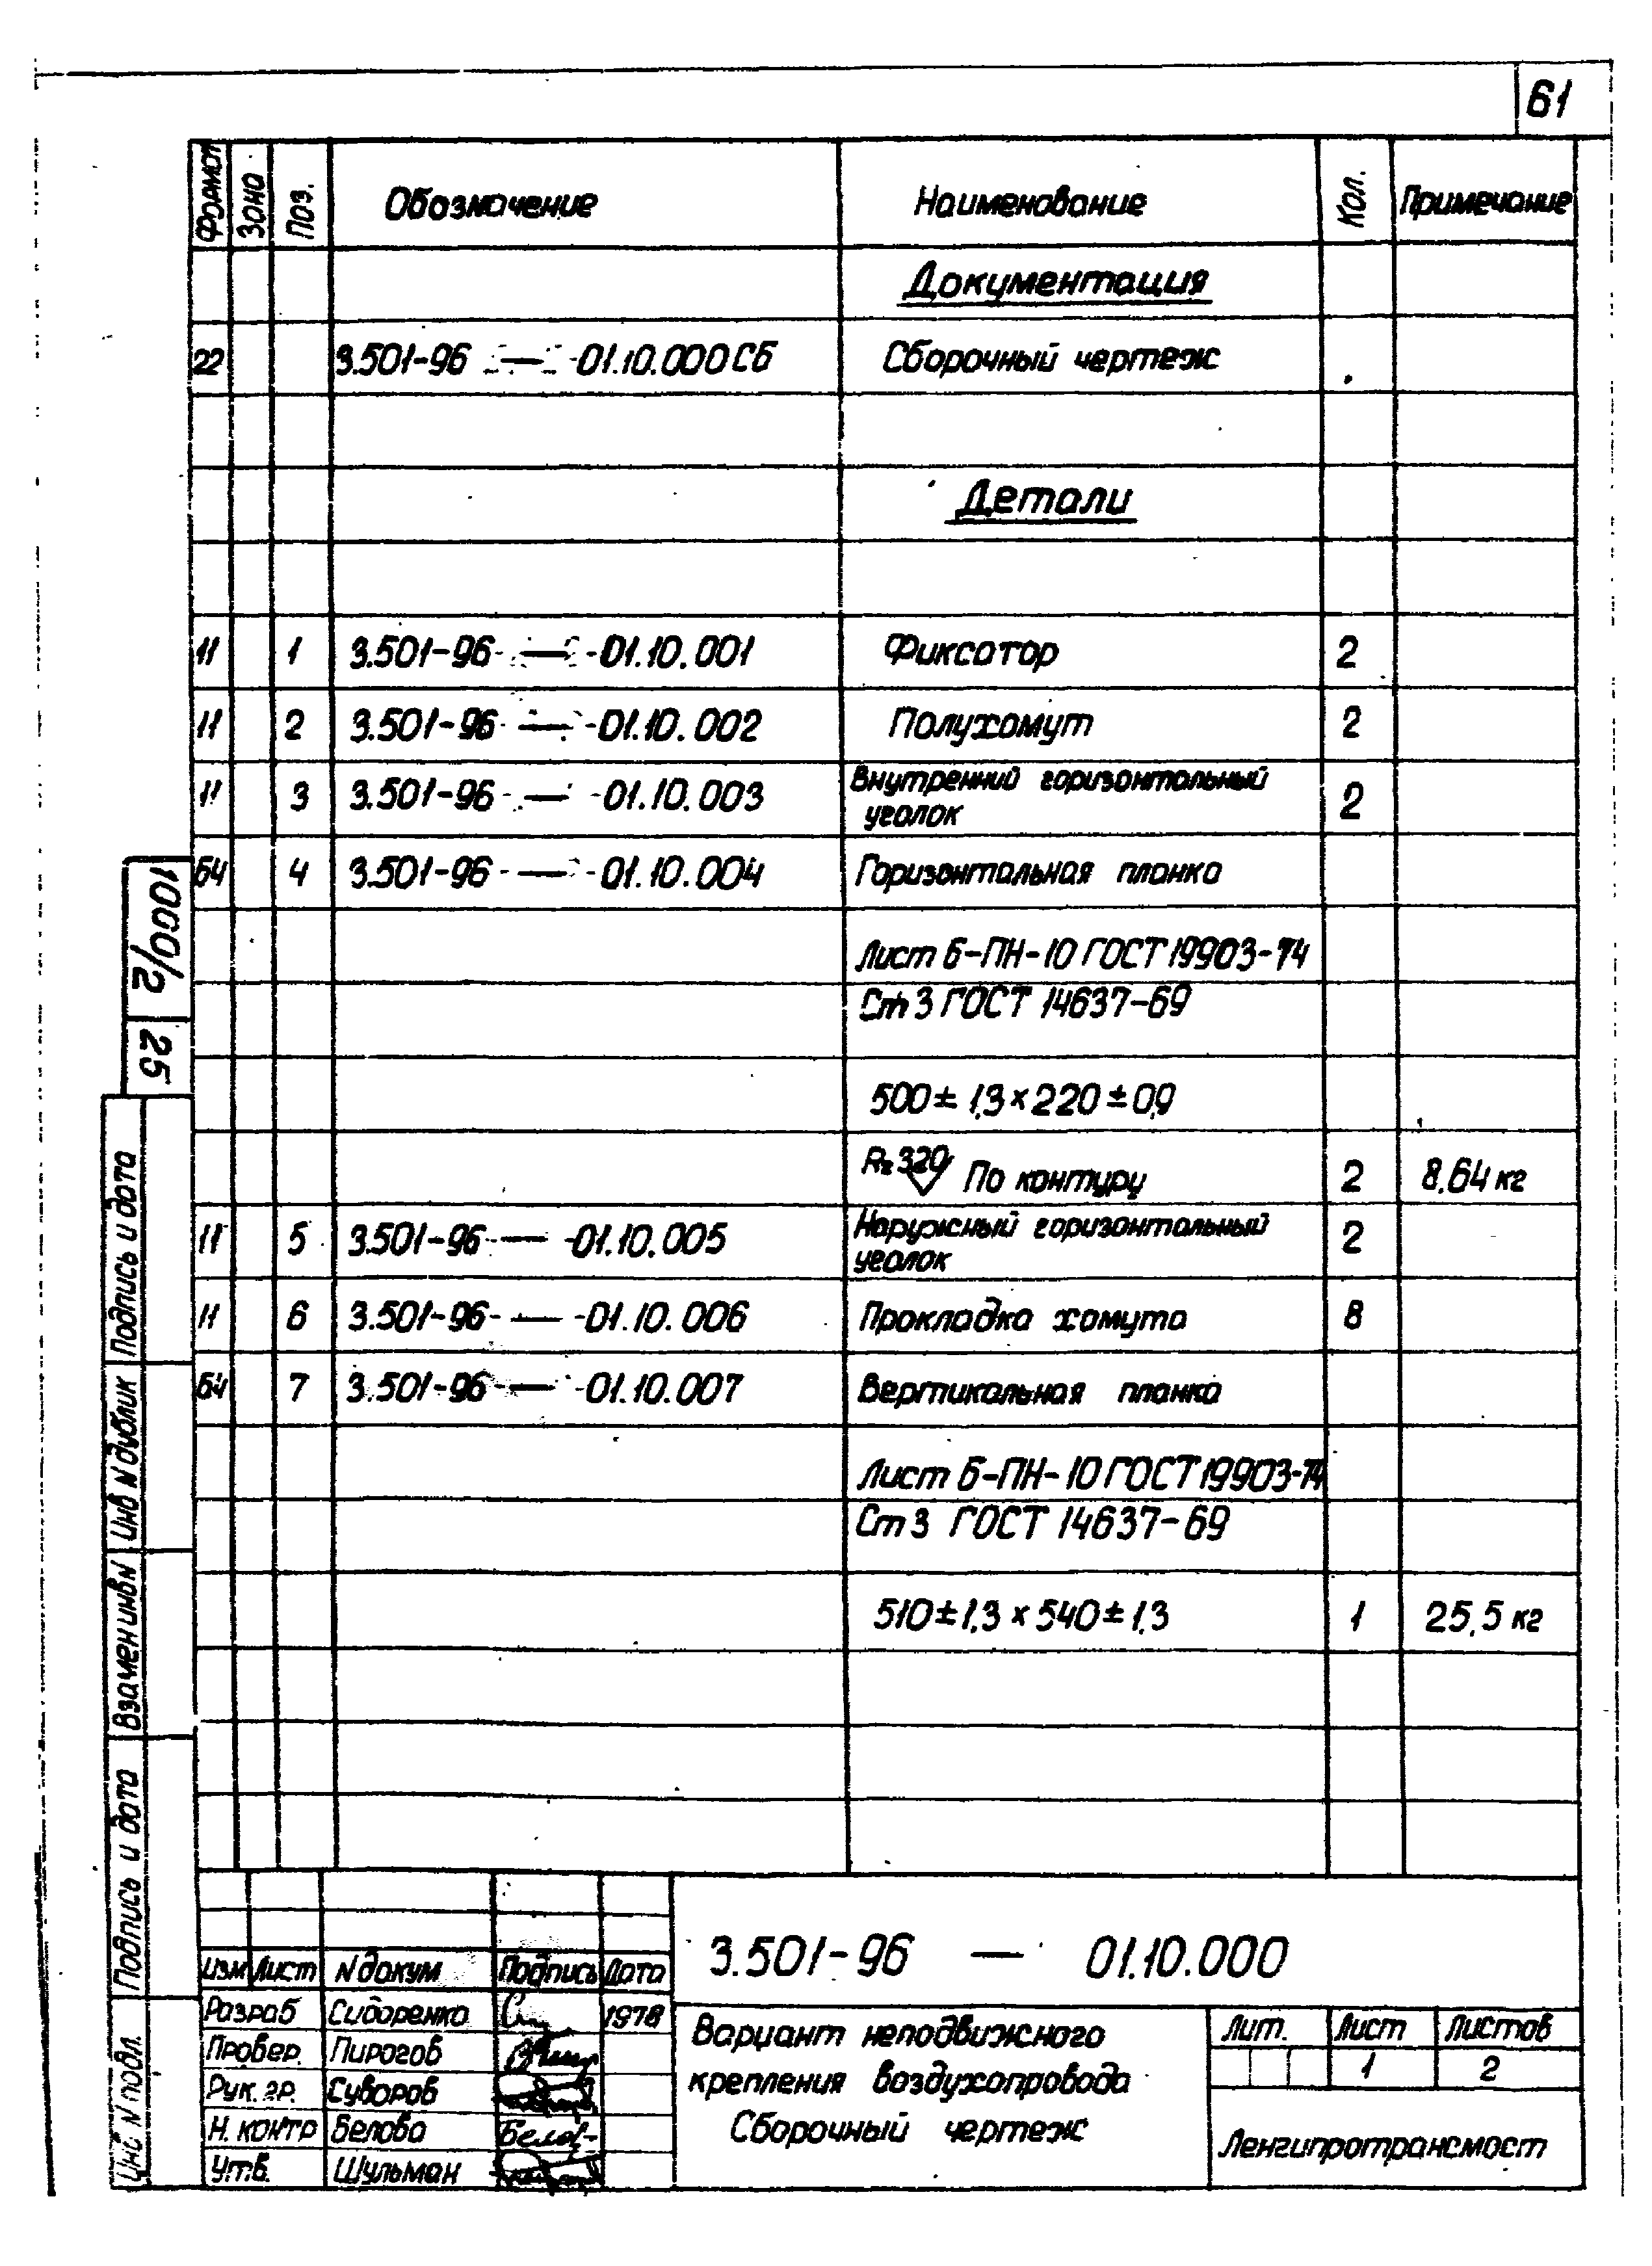 61
Формат Зона Поз. Обозначение Наименование Кол. Примечание
Документация
22 3.501-96 — -01.10.000СБ Сборочный чертеж
Детали
11 1 3.501-96 — -01.10.001 Фиксатор 2
11 2 3.501-96 — -01.10.002 Полухомут 2
11 3 3.501-96 — -01.10.003 Внутренний горизонтальный
уголок 2
б4 4 3.501-96 — -01.10.004 Горизонтальная планка
Лист Б-ПН-10 ГОСТ 19903-74
Ст 3 ГОСТ 14637-69
500 ± 1,3 × 220 ± 0,9
Rz 320 По контуру 2 8,64 кг
11 5 3.501-96 — -01.10.005 Наружный горизонтальный
уголок 2
11 6 3.501-96 — -01.10.006 Прокладка хомута 8
б4 7 3.501-96 — -01.10.007 Вертикальная планка
Лист Б-ПН-10 ГОСТ 19903-74
Ст 3 ГОСТ 14637-69
510 ± 1,3 × 540 ± 1,3 1 25,5 кг
1000/2 25
Подпись и дата
Инв N дублик
Взамен инв N
Подпись и дата
Инв. N подл.
Изм Лист N докум Подпись Дата
Разраб Сидоренко 1978
Провер. Пирогов
Рук. гр. Суворов
Н. контр Белова Белов-
Утв. Шульман
3.501-96 — 01.10.000
Вариант неподвижного
крепления воздухопровода
Сборочный чертеж
Лит. Лист Листов
1 2
Ленгипротрансмост